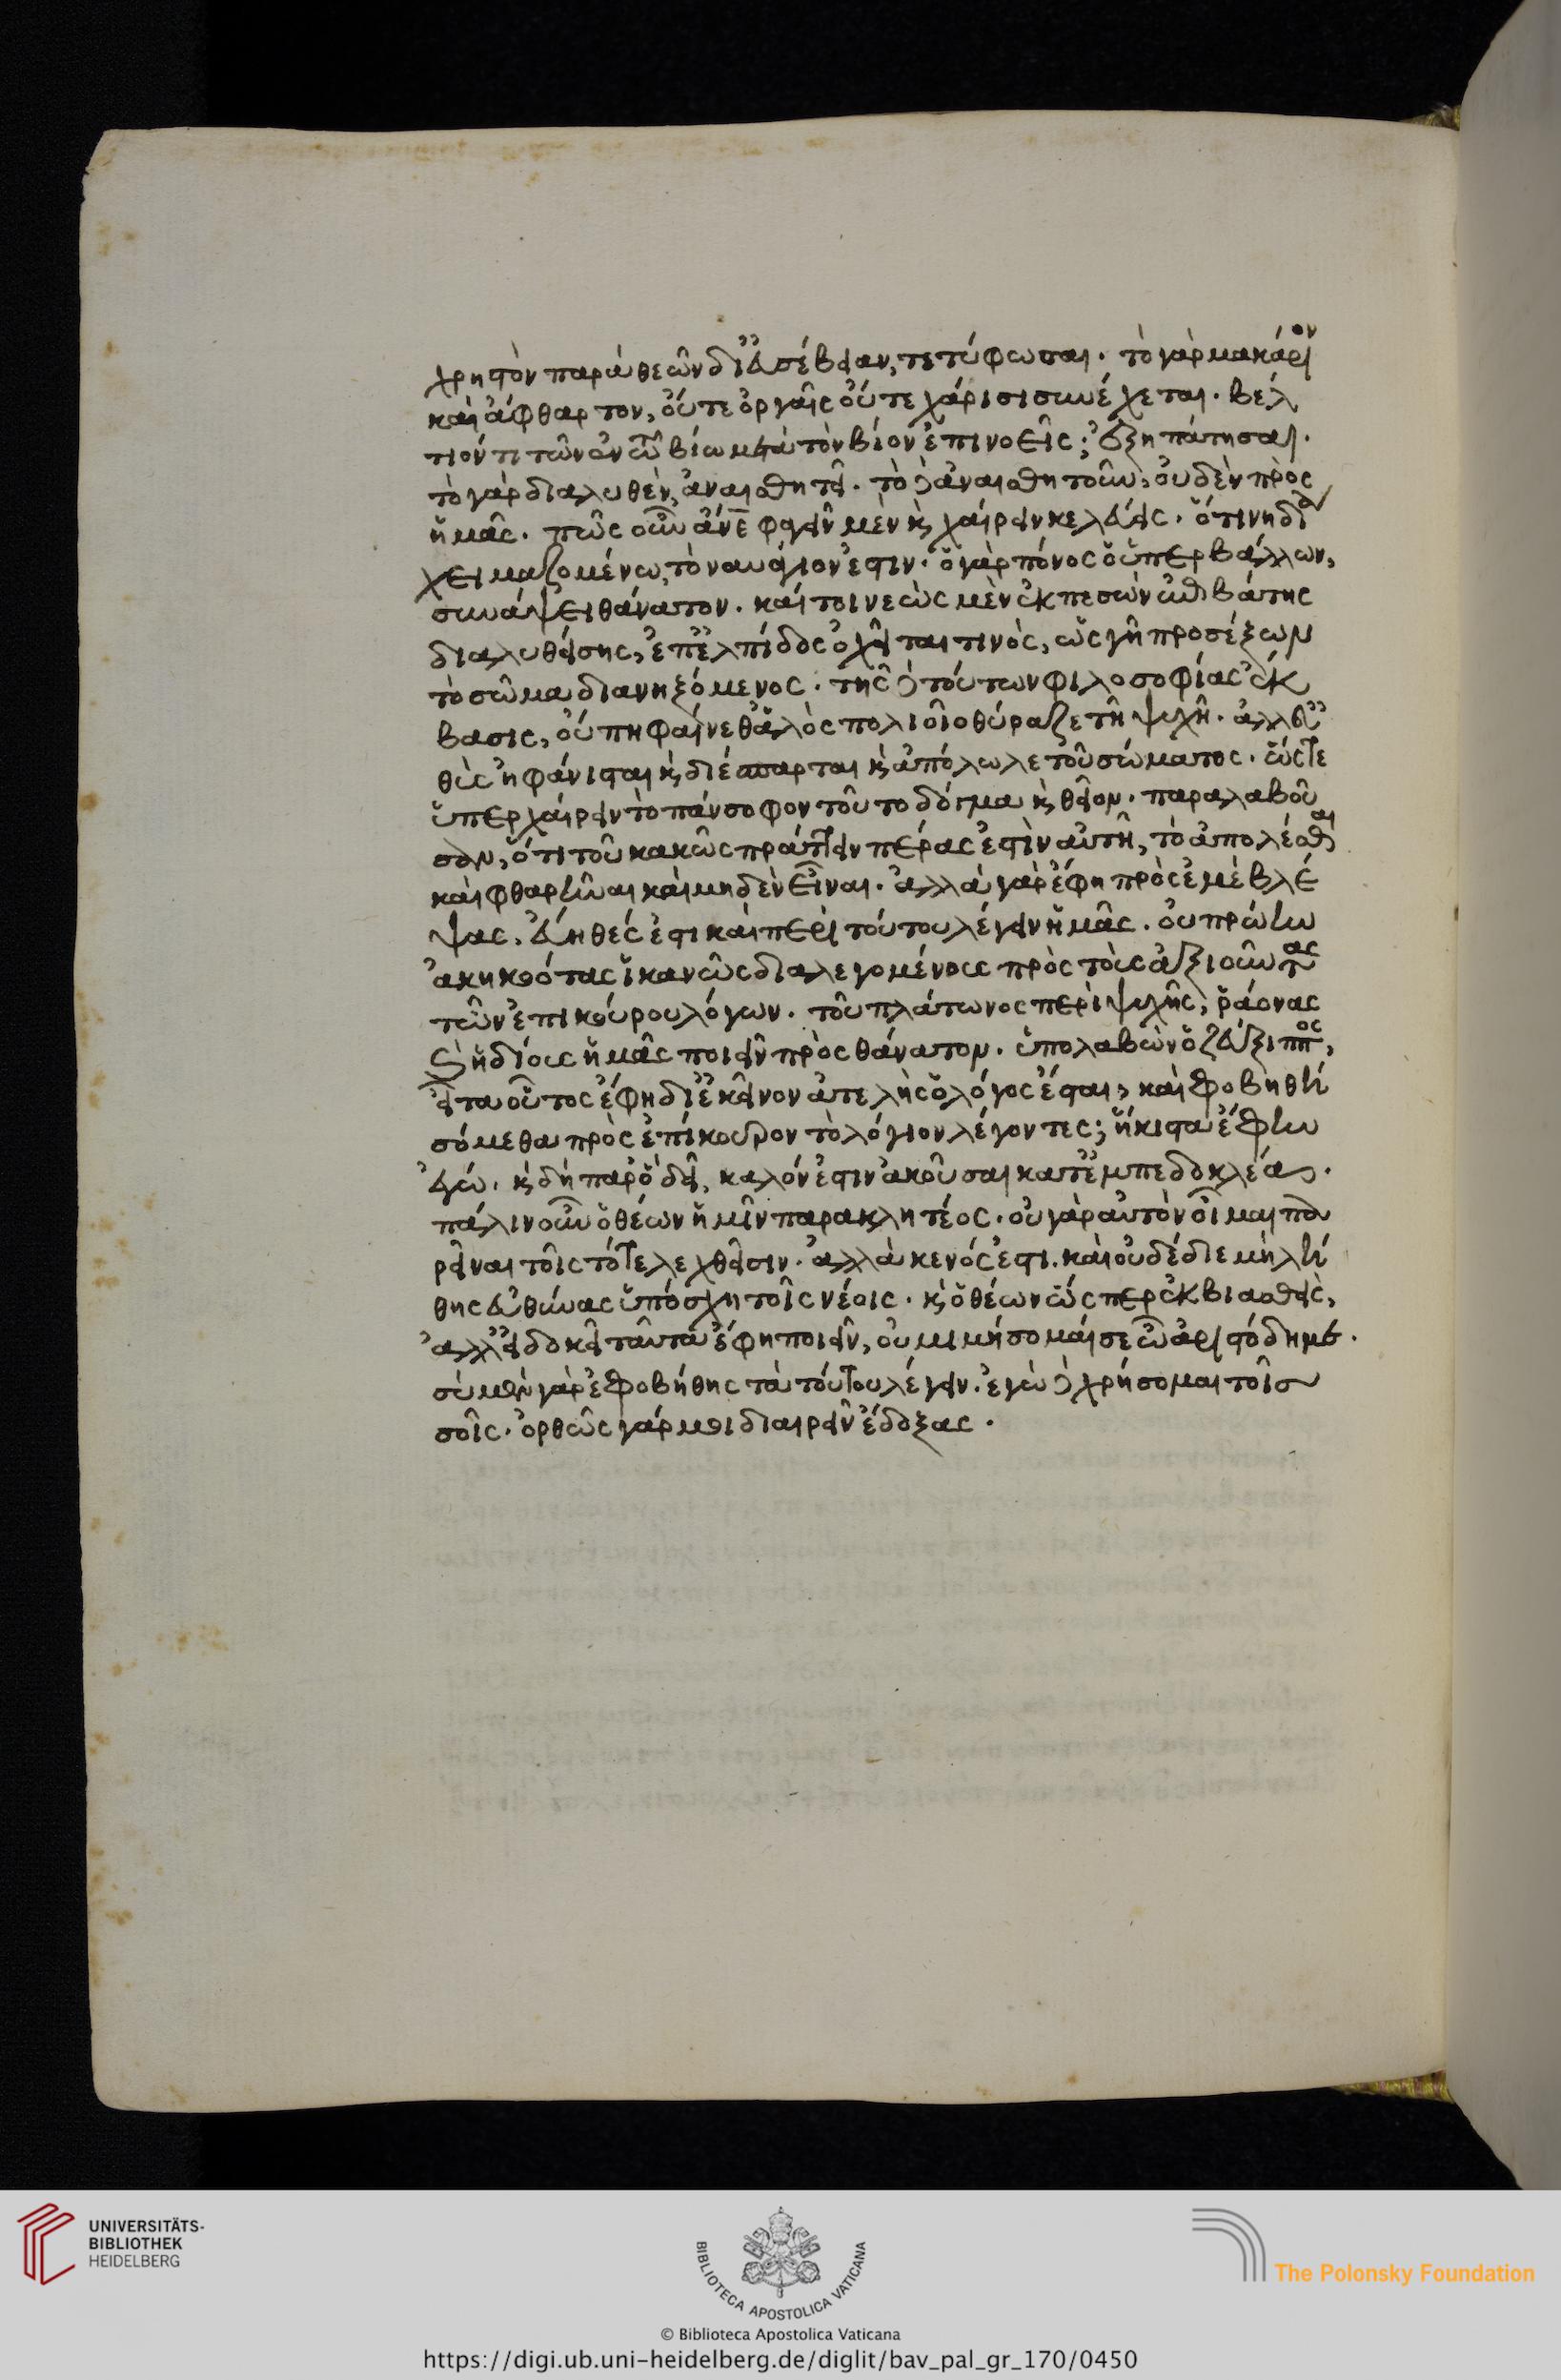 χρηστὸν παρὰ θεῶν δι' εὐσέβειαν, τετύφωται. τὸ γὰρ μακάριον
καὶ ἄφθαρτον, οὔτε ὀργαῖς οὔτε χάρισι συνέχεται. βέλ
τιόν τι τῶν ἐν τῶ βίω μετὰ τὸν βίον ἐπινοεῖς; ἐξηπάτησαι.
τὸ γὰρ διαλυθὲν, ἀναισθητεῖ. τὸ δὲ ἀναισθητοῦν, οὐδὲν πρὸς
ἡμᾶς. πῶς οὖν φαγεῖν μὲν καὶ χαίρειν κελεύεις. ὅτι νὴ δία
χειμαζομένω, τὸ ναυάγιον ἐστιν. ὁ γὰρ πόνος ὁ ὑπερβάλλων,
συνάψει θάνατον. καίτοι νεὼς μὲν ἐκπεσὼν ἐπιβάτης
διαλυθείσης, ἐπ' ἐλπίδος ὀχεῖται τινὸς, ὡς γῆ προσέξων
τὸ σῶμα διανηξόμενος. τῆς δὲ τούτων φιλοσοφίας ἐκ
βασις, οὔπη φαίνεθ' ἁλὸς πολιοῖο θύραζε τῆ ψυχῆ. ἀλλ' εὐ
θὺς ἠφάνισται καὶ διέσπαρται καὶ ἀπόλωλε τοῦ σώματος. ὥστε
ὑπερχαίρειν τὸ πάνσοφον τοῦτο δόγμα καὶ θεῖον. παραλαβοῦ
σαν, ὅτι τοῦ κακῶς πράττειν πέρας ἐστὶν αὐτῆ, τὸ ἀπολέσθαι
καὶ φθαρῆναι καὶ μηδὲν εἶναι. ἀλλὰ γὰρ ἔφη πρὸς ἐμὲ βλέ
ψας, εὔηθές ἐστι καὶ περὶ τούτου λέγειν ἡμᾶς. οὐ πρώην
ἀκηκοότας ἱκανῶς διαλεγομένους πρὸς τοὺς ἀξιοῦντας
τῶν ἐπικούρου λόγων. τοῦ πλάτωνος περὶ ψυχῆς, ῥάονας
καὶ ἡδίους ἡμᾶς ποιεῖν πρὸς θάνατον. ὑπολαβὼν ὁ ζεύξιππος,
εἶτα οὗτος ἔφη δι' ἐκεῖνον ἀτελὴς ὁ λόγος ἔσται, καὶ φοβηθη
σόμεθα πρὸς ἐπίκουρον τὸ λόγιον λέγοντες; ἥκιστα ἔφην
ἐγώ. καὶ δὴ παρ' ὃ δεῖ, καλόν ἐστιν ἀκοῦσαι κατ' ἐμπεδοκλέας.
πάλιν οὖν ὁ θέων ἡμῖν παρακλητέος. οὐ γὰρ αὐτὸν οἶμαι πα
ρεῖναι τοῖς τότε λεχθεῖσιν. ἀλλὰ κενός ἐστι. καὶ οὐ δέδιε μὴ λή
θης εὐθύνας ὑπόσχη τοῖς νέοις. καὶ ὁ θέων ὥσπερ ἐκβιασθεὶς,
ἀλλ' εἰ δοκεῖ ταῦτα ἔφη ποιεῖν, οὐ μιμήσομαί σε ὦ ἀριστόδημε.
σὺ μὲν γὰρ ἐφοβήθης τὰ τούτου λέγειν. ἐγὼ δὲ χρήσομαι τοῖς
σοῖς. ὀρθῶς γάρ μοι διαιρεῖν ἔδοξας.
UNIVERSITÄTS-
BIBLIOTHEK
HEIDELBERG
BIBLIOTECA APOSTOLICA VATICANA
The Polonsky Foundation
© Biblioteca Apostolica Vaticana
https://digi.ub.uni-heidelberg.de/diglit/bav_pal_gr_170/0450